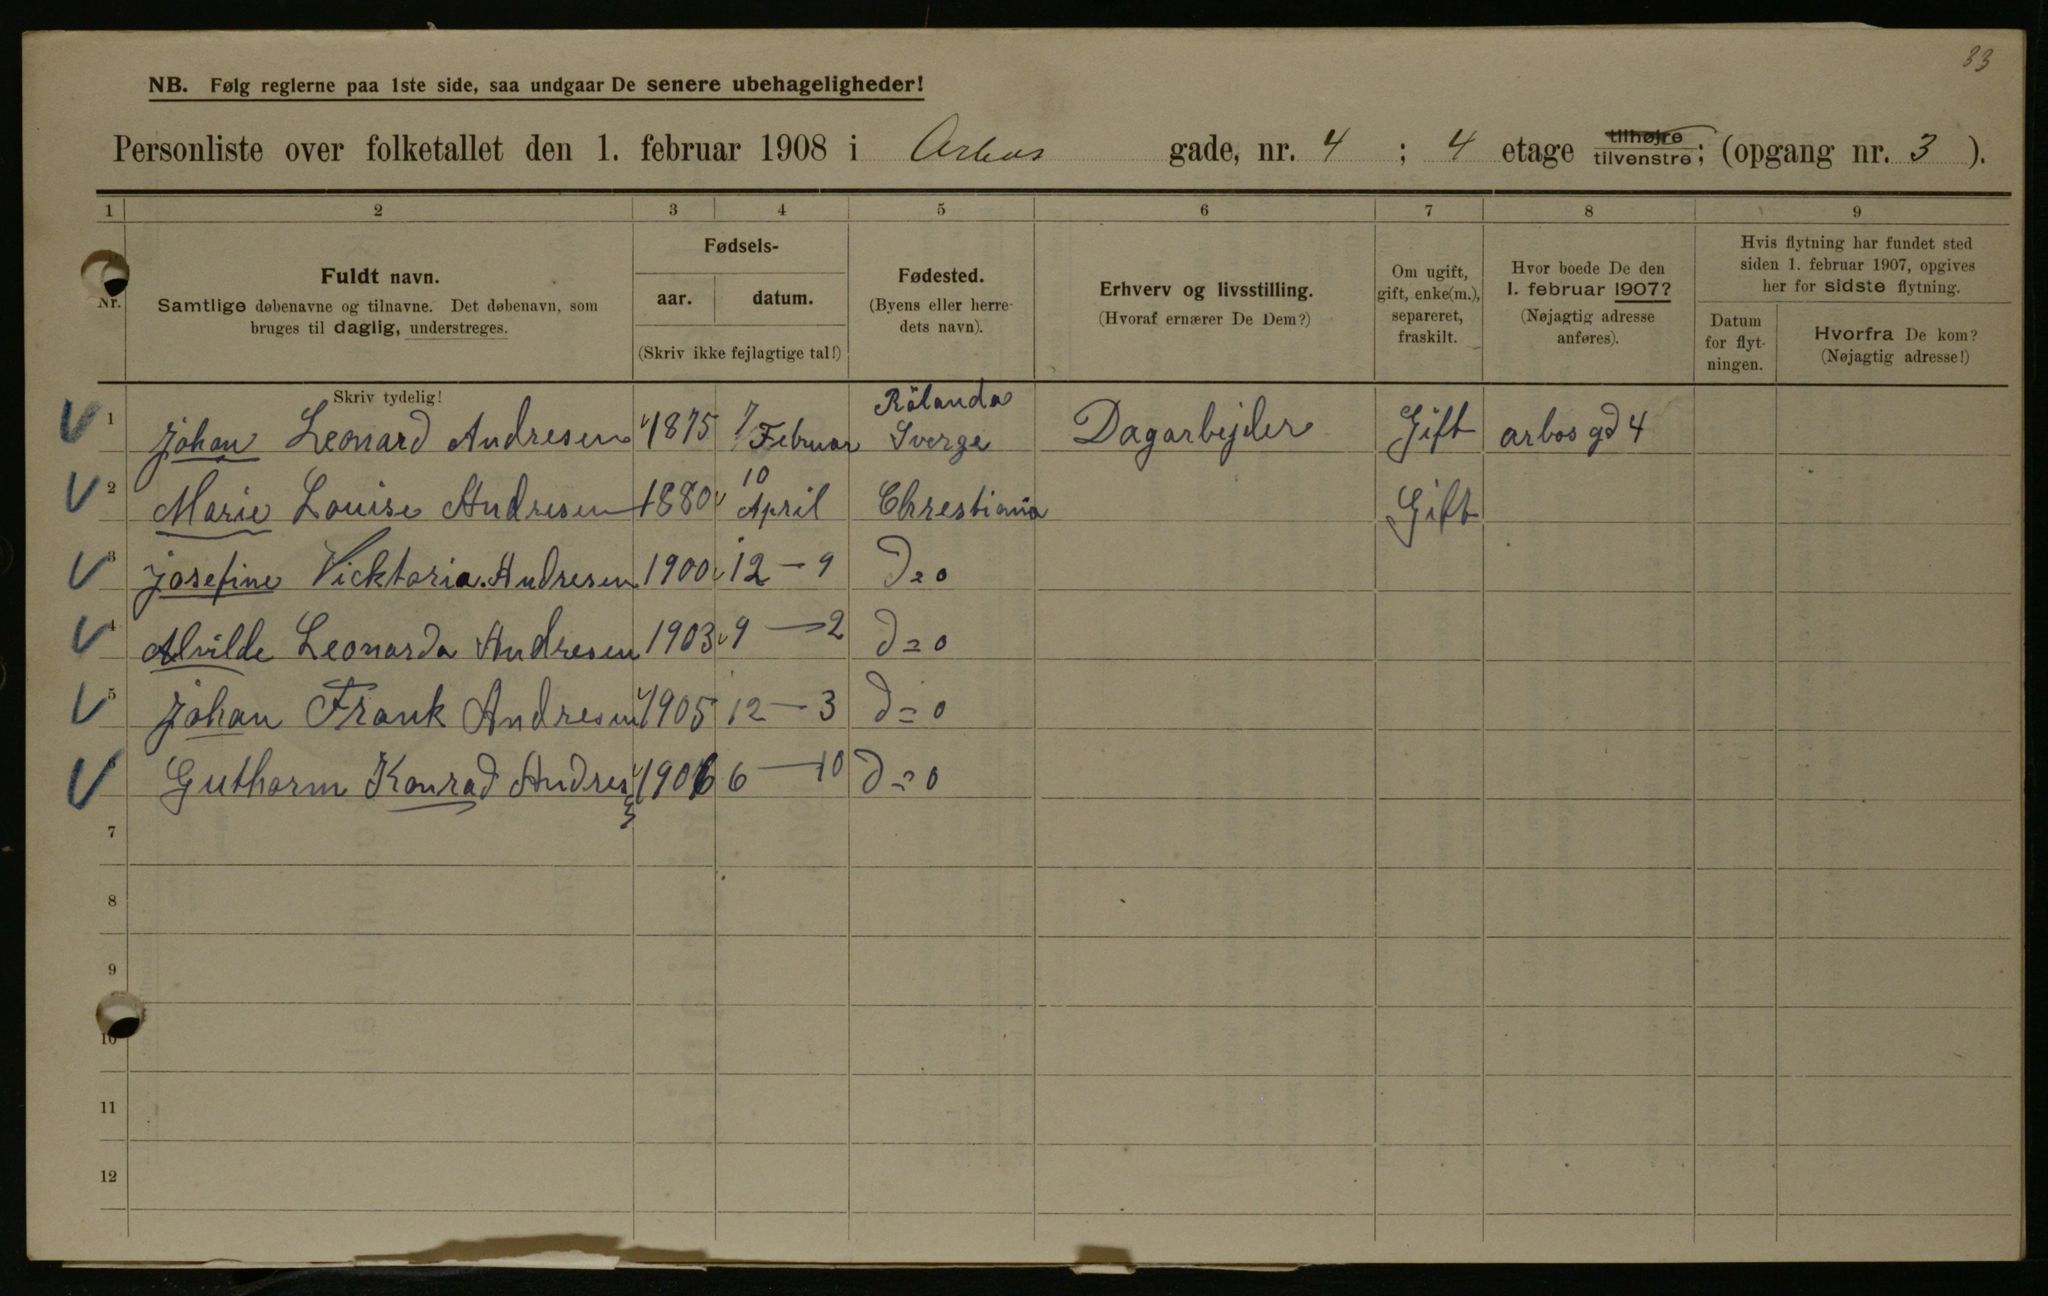 33
NB. Følg reglerne paa 1ste side, saa undgaar De senere ubehageligheder!
Personliste over folketallet den 1. februar 1908 i Arbos gade, nr. 4 ; 4 etage tilhøjre tilvenstre; (opgang nr. 3 ).
1 2 3 4 5 6 7 8 9
Nr.
Fuldt navn.
Samtlige døbenavne og tilnavne. Det døbenavn, som
bruges til daglig, understreges.
Fødsels-
aar. datum.
(Skriv ikke fejlagtige tal!)
Fødested.
(Byens eller herre-
dets navn).
Erhverv og livsstilling.
(Hvoraf ernærer De Dem?)
Om ugift,
gift, enke(m.),
separeret,
fraskilt.
Hvor boede De den
1. februar 1907?
(Nøjagtig adresse
anføres).
Hvis flytning har fundet sted
siden 1. februar 1907, opgives
her for sidste flytning.
Datum
for flyt-
ningen.
Hvorfra De kom?
(Nøjagtig adresse!)
Skriv tydelig!
1 Johan Leonard Andresen 1875 7/Februar Rölanda Sverge Dagarbejder Gift arbos gd 4
2 Marie Louise Andresen 1880 10 April Chrestiania Gift
3 Josefine Vicktoria Andresen 1900 12 – 9 D=o
4 Alvilde Leonarda Andresen 1903 9 – 2 D=o
5 Johan Frank Andresen 1905 12 – 3 D=o
6 Guthorm Konrad Andresen 1906 6 – 10 D=o
7
8
9
10
11
12